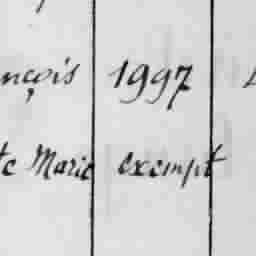 nçois 1997
te Marie exempt